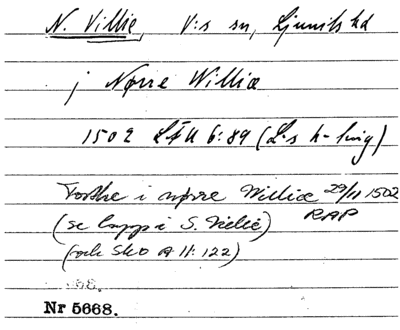 N. Villie, V:s sn, Ljunits hd
j Nørre Williæ
1502 LÄU 6:89 (L:s h-ting)
Torthe i nørre Williæ 29/11 1502
(se lapp i S. Vielie) RAP
(och SkO A II: 122)
Nr 5668.